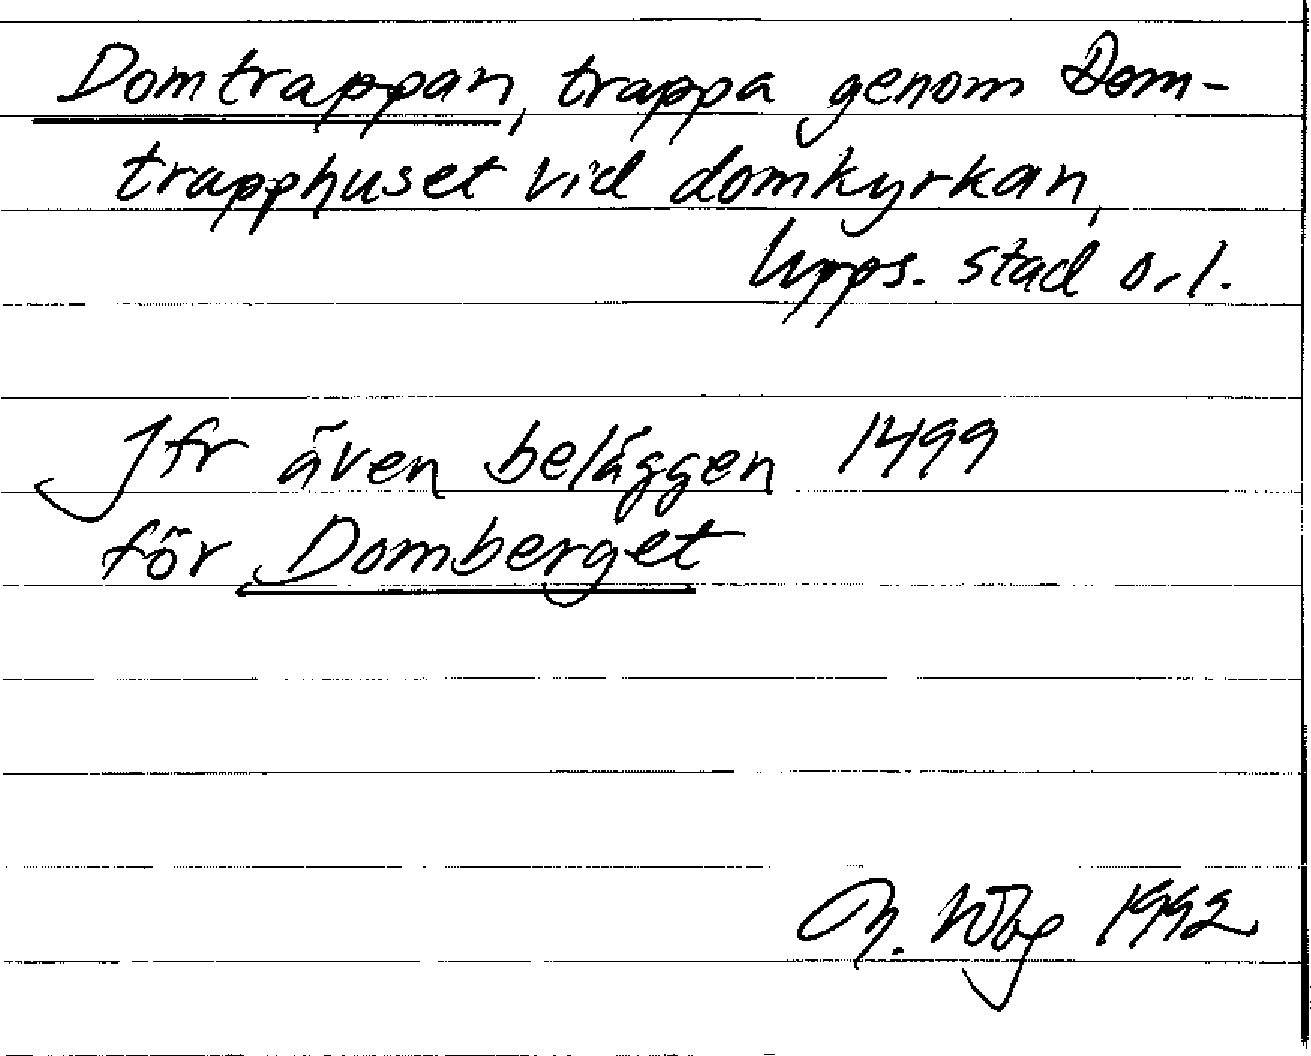 Domtrappan, trappa genom Dom-
trapphuset vid domkyrkan,
Upps. stad o.l.
Jfr även beläggen 1499
för Domberget
M. 1992